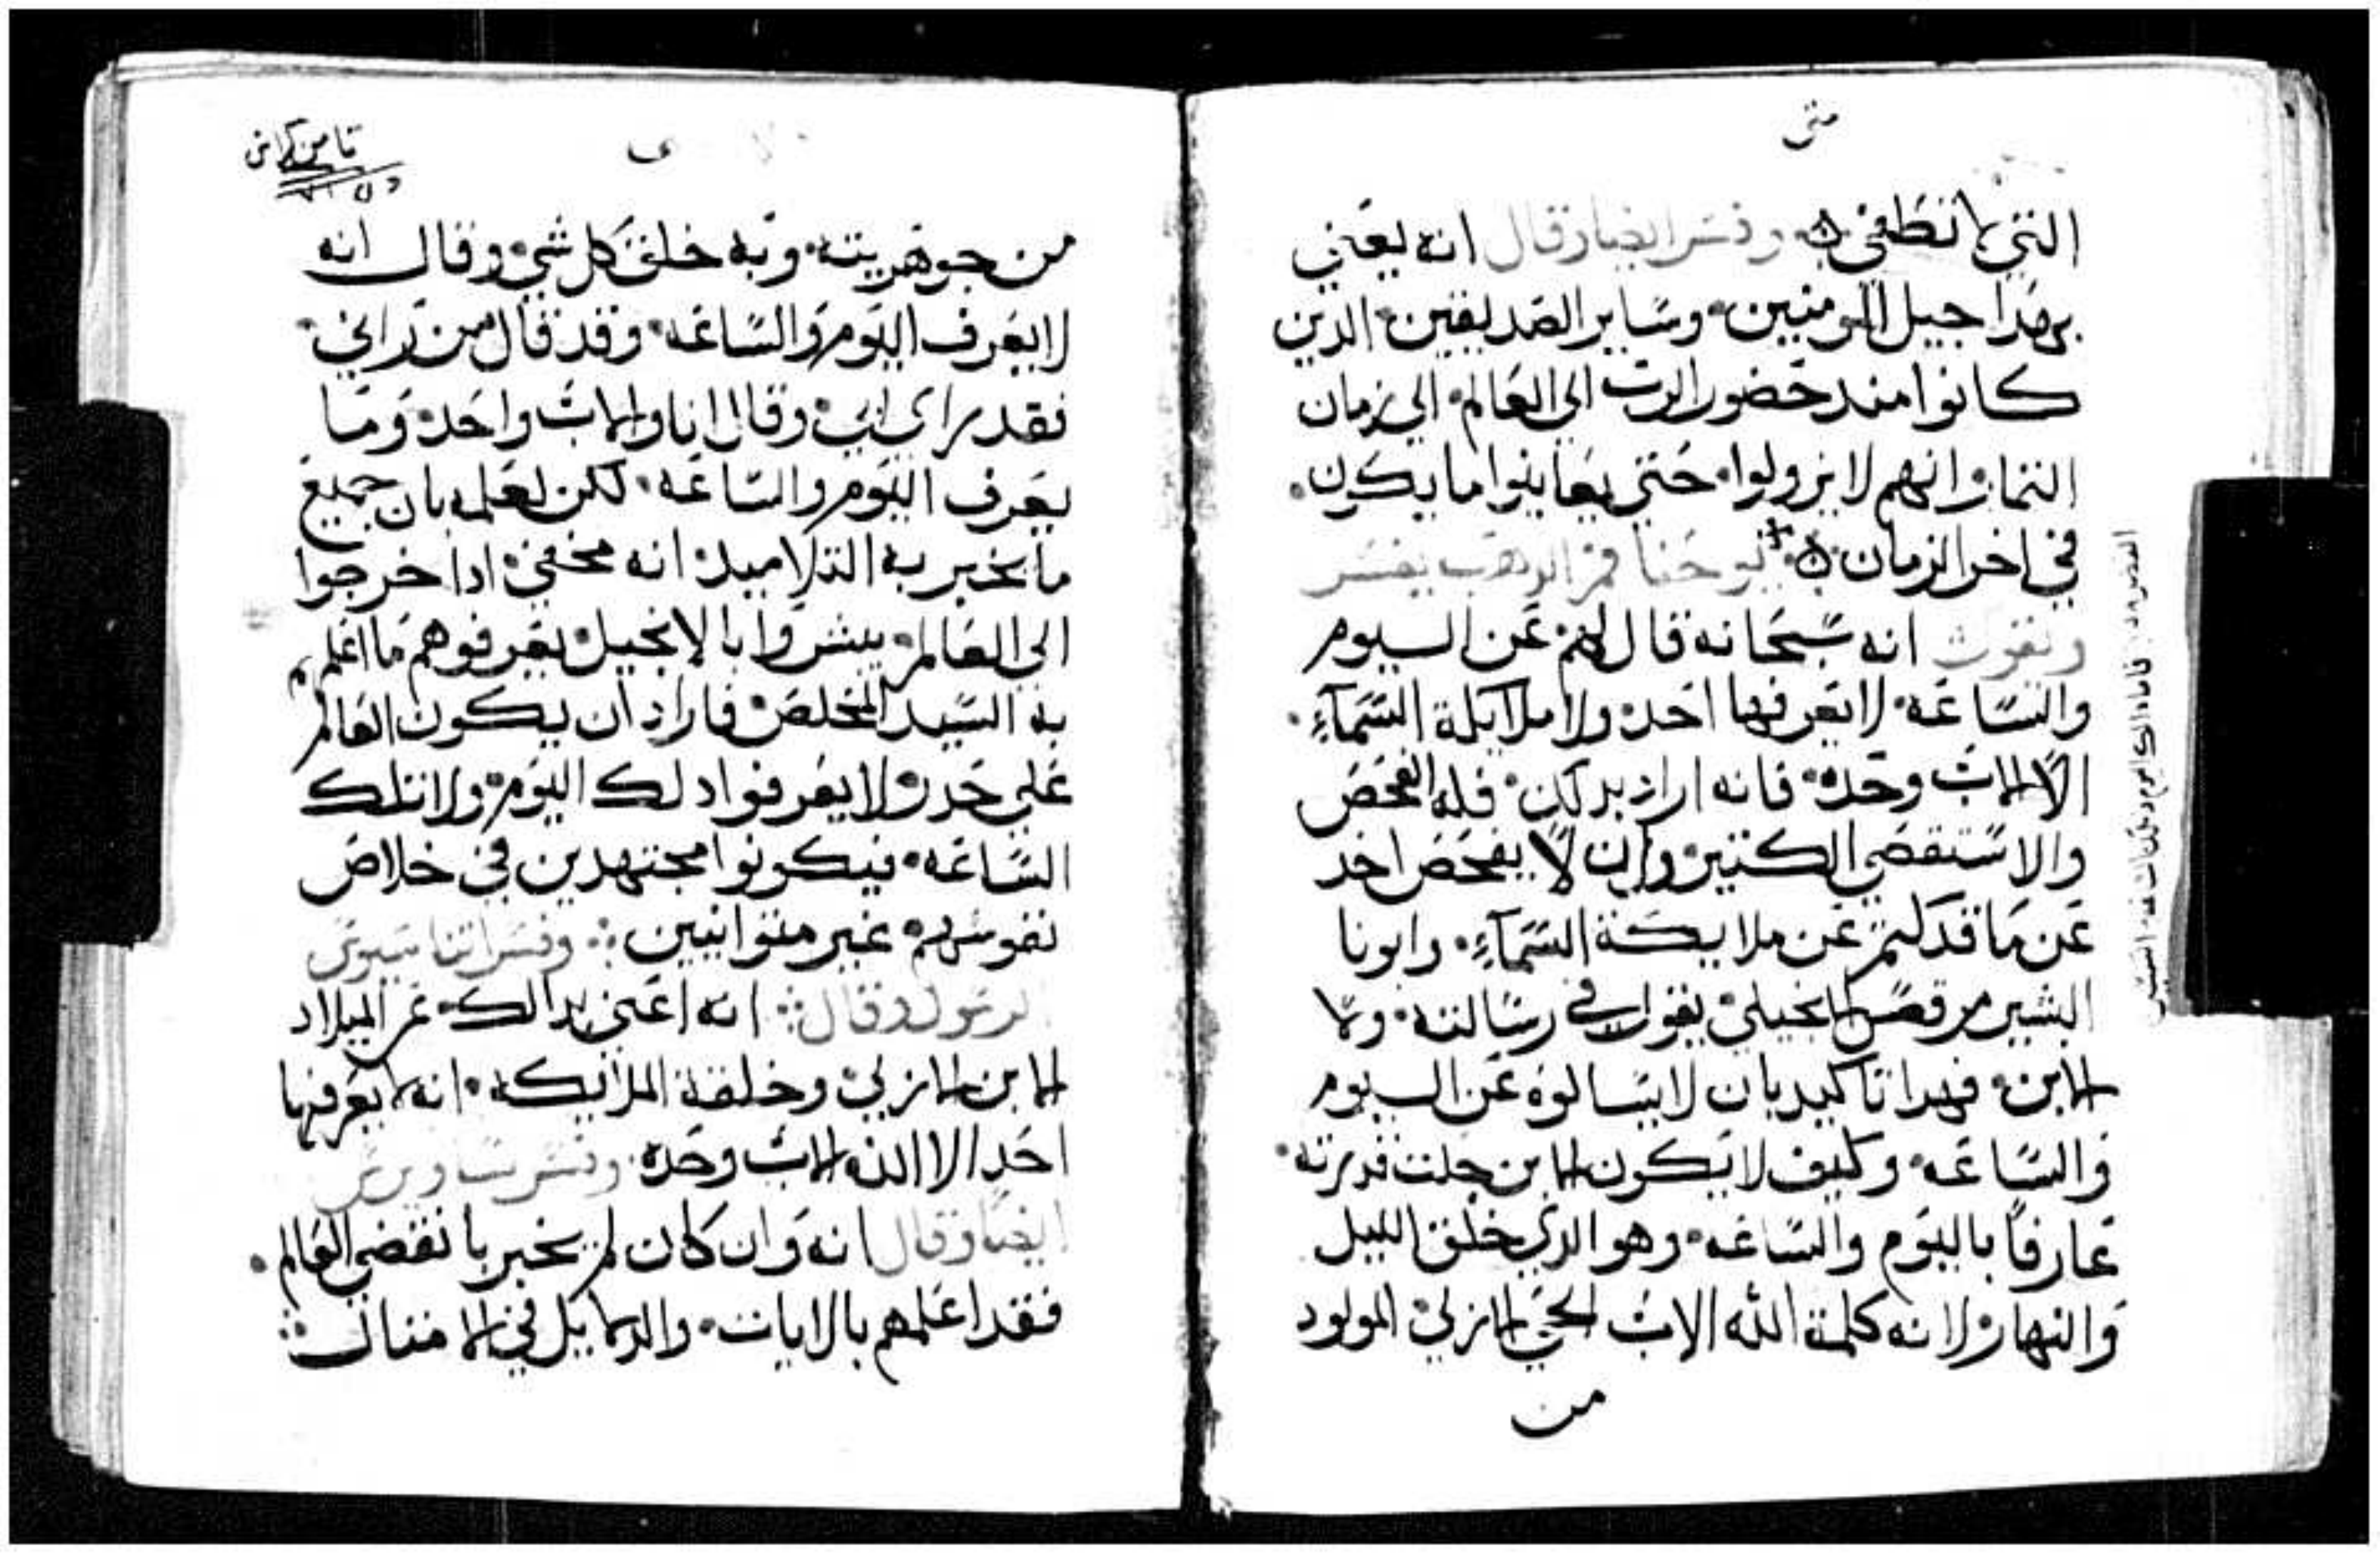 متى
التي لا تطفي ٥ وفسر ايضا وقال انه يعني
بهدا جيل المومنين وساير الصديقين الدين
كانوا مند حضور الرب الي العالم الي زمان
التمام وانهم لا يزولوا حتي يعاينوا ما يكون
في اخر الزمان ٥ يوحنا فم الدهب يفسر
ويقول انه سبحانه قال لهم عن اليوم
والساعه لا يعرفها احد ولا ملايكة السماء
الا الاب وحده فانه اراد بدلك قله الفحص
والاستقصي الكتير وان لا يفحص احد
عن ما قد كتم عن ملايكة السماء وابونا
البشير مرقص الانجيلي يقول في رسالته ولا
الابن فهدا تاكيد بان لا يسالوه عن اليوم
والساعه وكيف لا يكون الابن جلت قدرته
عارفا باليوم والساعه وهو الدي خلق الليل
والنهار لانه كلمة الله الاب الحي الازلي المولود
من
ثامن كراس
من جوهريته وبه خلق كل شي وقال انه
لا يعرف اليوم والساعه وقد قال من راني
فقد راي ابي وقال انا والاب واحد وما
يعرف اليوم والساعه لكن لعلمه بان جميع
ما يخبر به التلاميد انه مخفي ادا خرجوا
الي العالم يبشروا بالانجيل يعرفوهم ما اعلم
به السيد المخلص فاراد ان يكون العالم
علي حدر ولا يعرفوا دلك اليوم ولا تلك
الساعه فيكونوا مجتهدين في خلاص
نفوسهم غير متوانيين وفسر اتناسيوس
الرسول وقال انه اعني بدالك عن الميلاد
الابن الازلي وخلقة الملايكه انه لا يعرفها
احد الا الله الاب وحده وفسر ساويرس
ايضا وقال انه وان كان لم يخبر بانقضي العالم
فقد اعلمهم بالايات والدلايل في الامتال